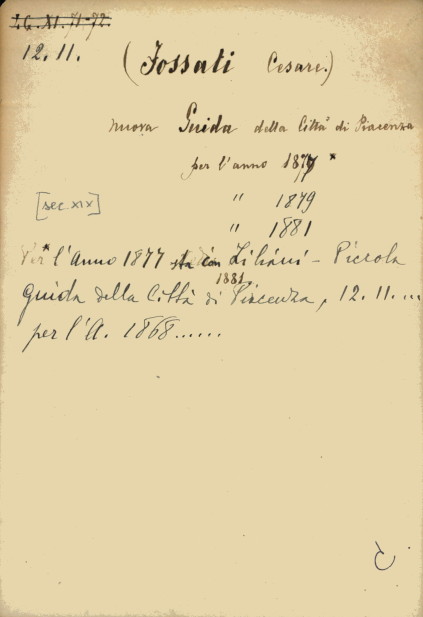 I.G.XI.71-72.
12.11.
(Fossati Cesare.)
Nuova Guida della Città di Piacenza
per l'anno 1877 *
" 1879
[sec. XIX]
" 1881
* l'Anno 1877 sta con Liliani - Piccola
1881
Guida della Città di Piacenza, 12.11....
per l'A. 1868......